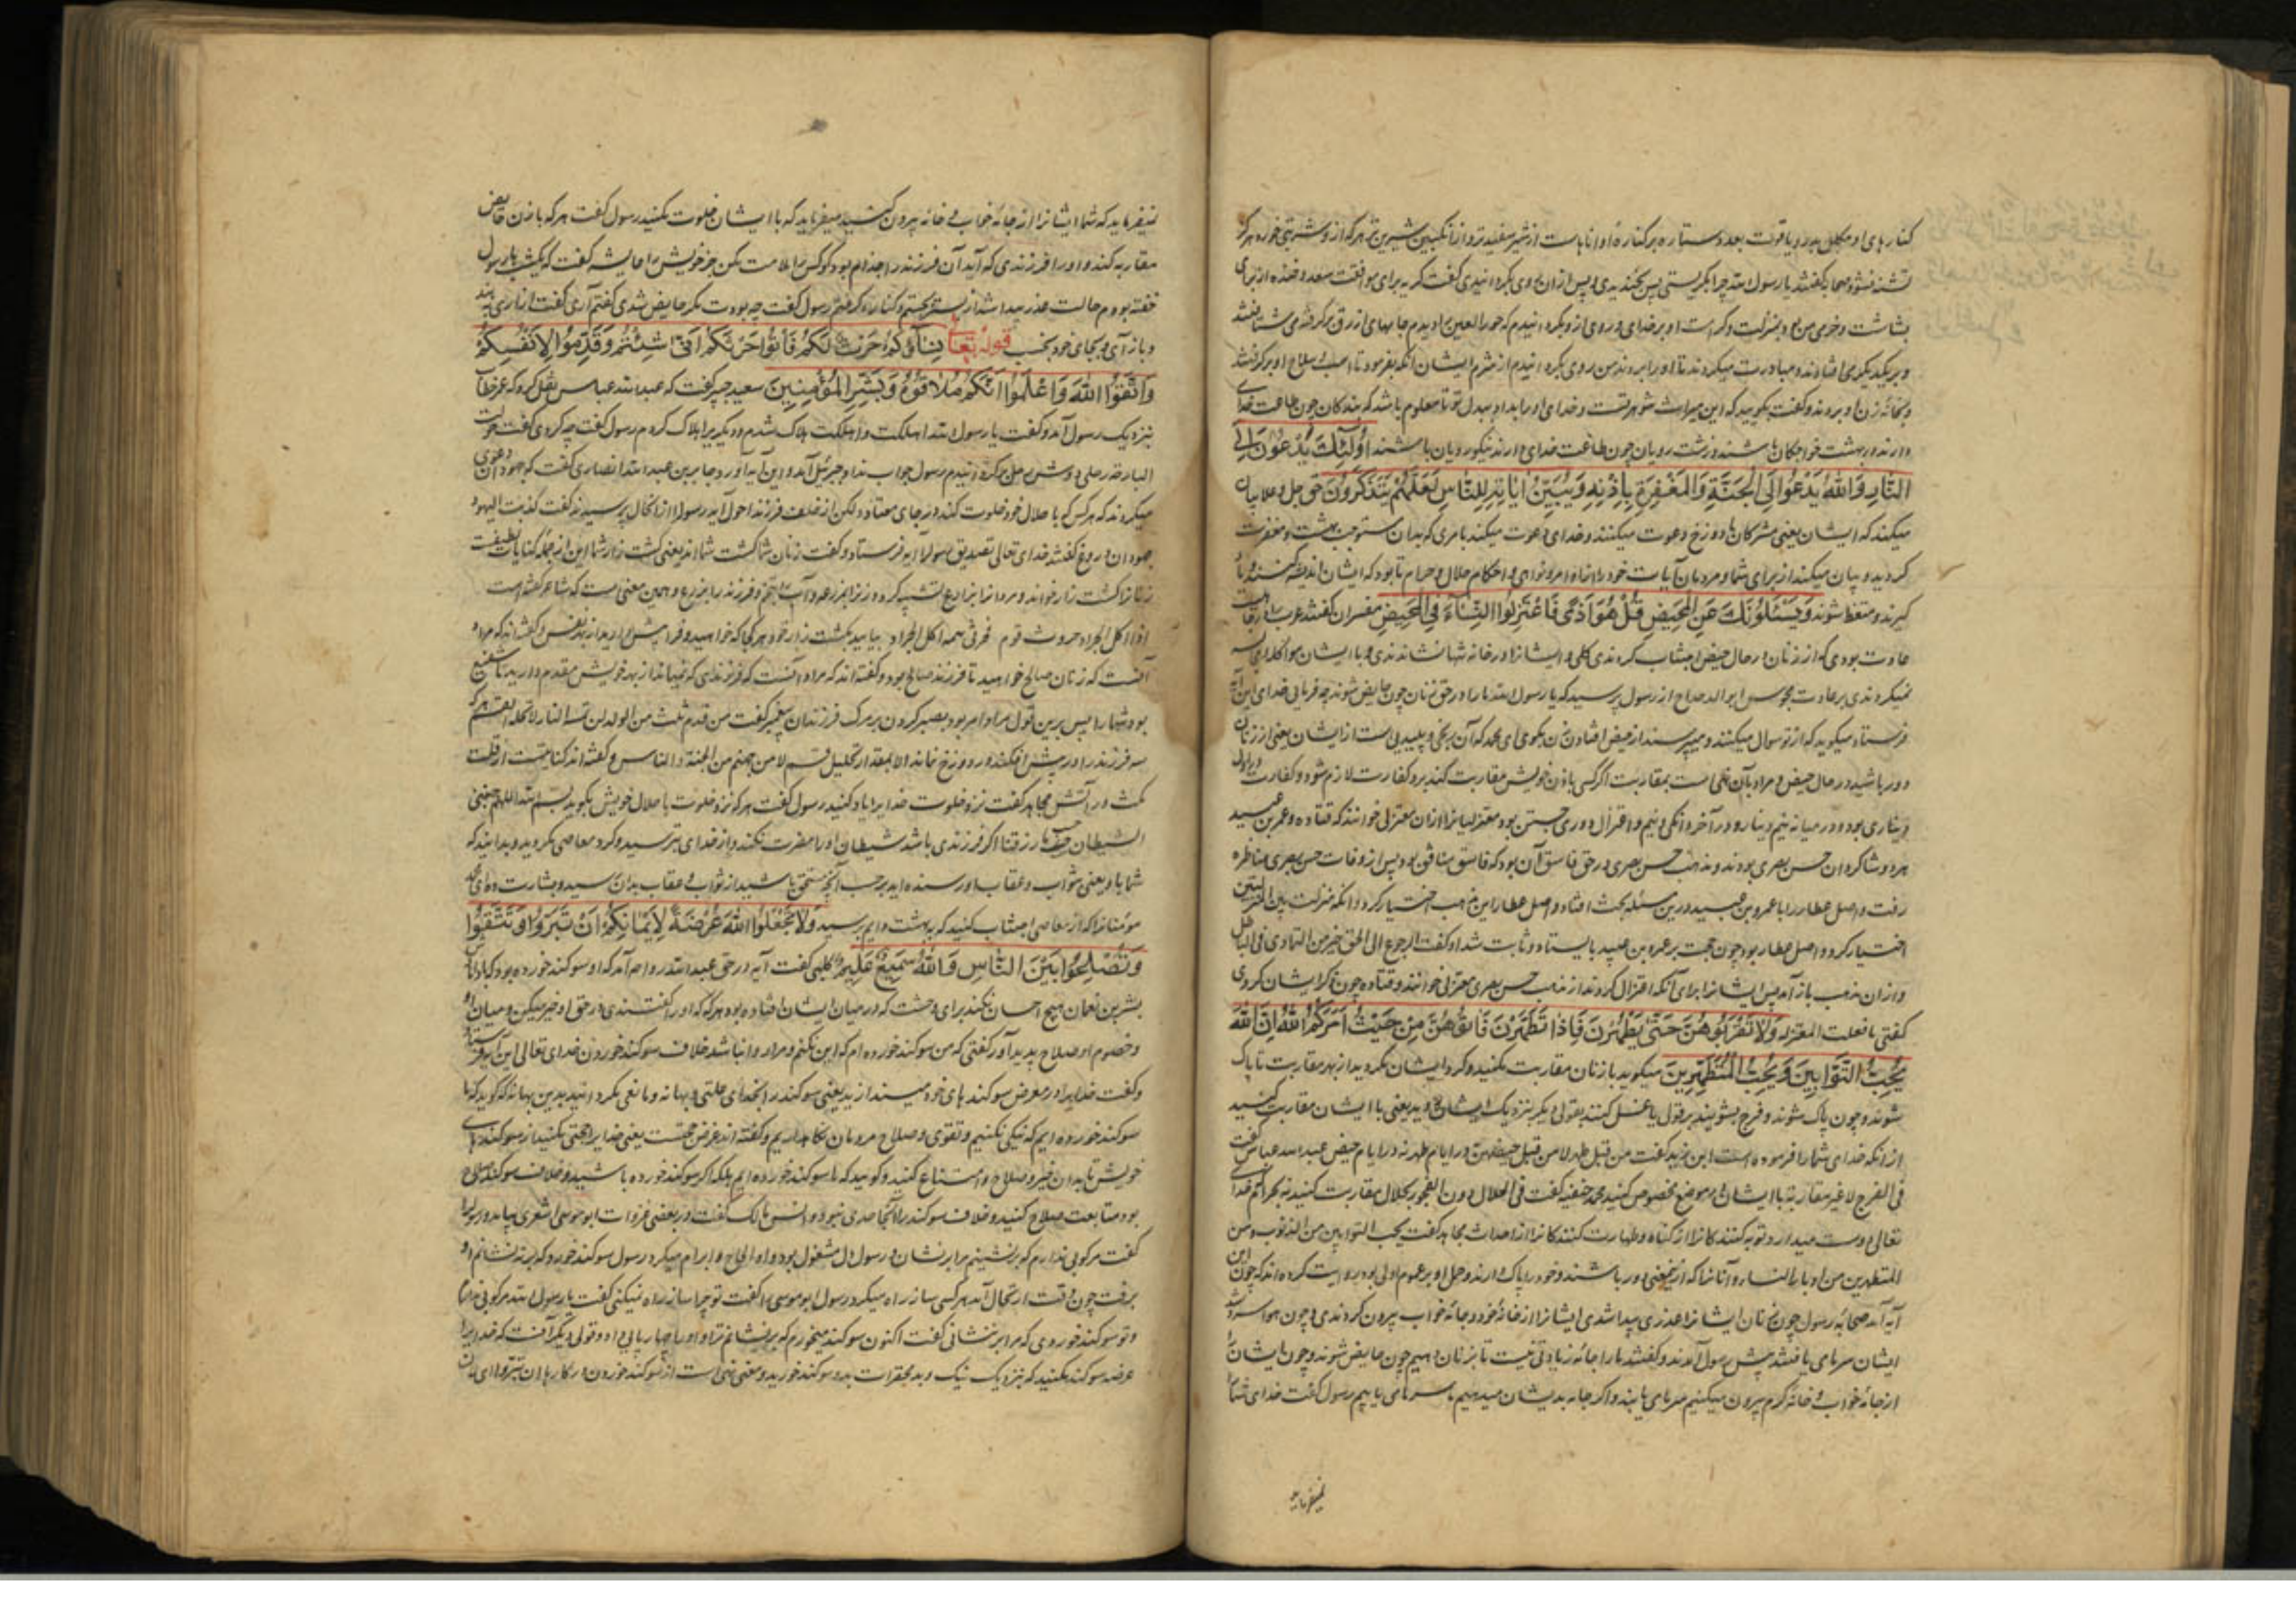 کنارهای او مکلل بدر و یاقوت بعدد ستاره بر کناره او اناها ست از شیر سفیدتر و از انگبین شیرین تر هر که از و شربتی خورد هرگز
تشنه نشود صحابه گفتند یا رسول الله چرا بگریستی پس بخندیدی و پس از آن روی بگردانیدی گفت گریه برای موافقت سعد و خنده از برای
بشاشت و خرمی من بود بمنزلت و کرامت او بر خدای و روی از و بگردانیدم که حور العین را دیدم جامهای ازرق برگرفته می شتافتند
و بر یکدیگر می افتادند و مبادرت میکردند تا او را ببردند من روی بگردانیدم از شرم ایشان آنگه بفرمود تا اسب و سلاح او برگرفتند
و بخانه زن او بردند و گفت بگویید که این میراث شوهر تست و خدای او را بداد بدل تو تا معلوم باشد که بندکان چون طاعت خدای
دارند در بهشت خواجکان باشند و زشت رویان چون طاعت خدای دارند نیکورویان باشند اُولٰئِكَ یَدْعُونَ اِلَی
النَّارِ وَاللهُ یَدْعُوا اِلَی الْجَنَّةِ وَالْمَغْفِرَةِ بِاِذْنِهِ وَیُبَیِّنُ اٰیَاتِهِ لِلنَّاسِ لَعَلَّهُمْ یَتَذَكَّرُونَ حق جل و علا بیان
میکند که ایشان یعنی مشرکان با دوزخ دعوت میکنند و خدای دعوت میکند بامری که بدان مستوجب بهشت و مغفرت
گردید و بیان میکند از برای شما و مردمان آیات خود را از اوامر و نواهی و احکام حلال و حرام تا بود که ایشان اندیشه کنند و پند
گیرند و متعظ شوند وَیَسْئَلُونَكَ عَنِ الْمَحِیضِ قُلْ هُوَ اَذًی فَاعْتَزِلُوا النِّسَاءَ فِی الْمَحِیضِ مفسران گفتند عرب را در جاهلیت
عادت بودی که از زنان در حال حیض اجتناب کردندی کلی و ایشانرا در خانه تنها نشاندندی و با ایشان مواکله
نمیکردندی بر عادت مجوس ابو الدحداح از رسول پرسید که یا رسول الله ما را در حق زنان چون حایض شوند چه فرمایی خدای این آیه
فرستاد میگوید که از تو سوال میکنند و میپرسند از حیض افتادن زن بگوی ای محمد که آن رنجی و پلیدیی است از ایشان یعنی از زنان
دور باشید در حال حیض و مراد بآن نهی است بمقاربت اگر کسی با زن خویش مقاربت کند برو کفارت لازم شود و کفارت در اول
دیناری بود و در میانه نیم دینار و در آخر دانگی و نیم و اعتزال دوری جستن بود معتزلیانرا از آن معتزلی خوانند که قتاده و عمرو بن عبید
هر دو شاکردان حسن بصری بودند و مذهب حسن بصری در حق فاسق آن بود که فاسق منافق بود پس از وفات حسن بصری مناظره
رفت و اصل عطار را با عمرو بن عبید درین مسئله بحث افتاد و اصل عطار این مذهب اختیار کرد و آنکه منزلت بین المنزلتین
اختیار کرد و اصل عطار بود چون حجت بر عمرو بن عبید بایستاد و ثابت شد او گفت الرجوع الی الحق خیر من التمادی فی الباطل
و از آن مذهب باز آمد پس ایشانرا برای آنکه اعتزال کردند از مذهب حسن بصری معتزلی خوانند و قتاده چون ذکر ایشان کردی
گفتی ما فعلت المعتزله وَلَا تَقْرَبُوهُنَّ حَتّٰی یَطْهُرْنَ فَاِذَا تَطَهَّرْنَ فَأْتُوهُنَّ مِنْ حَیْثُ اَمَرَكُمُ اللهُ اِنَّ اللهَ
یُحِبُّ التَّوَّابِینَ وَیُحِبُّ الْمُتَطَهِّرِینَ میگوید با زنان مقاربت مکنید و گرد ایشان مگردید از بهر مقاربت تا پاک
شوند و چون پاک شوند و فرج بشویند بر قول یا غسل کنند بقولی دیگر بنزدیک ایشان روید یعنی با ایشان مقاربت کنید
از آنکه خدای شما را فرموده است ابن زید گفت من قبل طهر لا من قبل حیضهن در ایام طهر نه در ایام حیض عبد الله عباس گفت
فی الفرج لا غیر مقاربه با ایشان در موضع مخصوص کنید محمد حنفیه گفت فی الحلال دون الفجور بحلال مقاربت کنید نه بحرام که خدای
تعالی دوست میدارد توبه کنندکانرا از گناه و طهارت کنندکانرا از احداث مجاهد گفت یحب التوابین من الذنوب و من
المتطهرین من ادبار النساء و آنانرا که از دور باشند و خود را پاک دارند و حمل او بر عموم اولی بود روایت کرده اند که چون این
آیه آمد صحابه رسول چون زنان ایشانرا عذری پیدا شدی ایشانرا از خانه خود و جامه خواب بیرون کردندی و چون هوا سرد شد
ایشان سرمای یافتند پیش رسول آمدند و گفتند ما را جامه زیادتی نیست تا بزنان دهیم چون حایض شوند و چون ایشانرا
از جامه خواب و خانه گرم بیرون میکنیم سرمای یابند و اگر جامه بدیشان میدهیم ما سرمای یابیم رسول گفت خدای شما را
نمیفرماید
نمیفرماید که شما ایشانرا از جامه خواب و خانه بیرون کنید میفرماید که با ایشان خلوت مکنید رسول گفت هر که با زن حایض
مقاربه کند و او را فرزندی که آید آن فرزند را جذام بود گو کس را ملامت مکن جز خویش را عایشه گفت که یکشب با رسول
خفته بودم حالت عذر پیدا شد از بستر بجستم و کناره گرفتم رسول گفت چه بودت مگر حایض شدی گفتم آری گفت ازاری بربند
و باز آی و بجای خود بخسب قوله تعالی نِسَاؤُكُمْ حَرْثٌ لَكُمْ فَأْتُوا حَرْثَكُمْ اَنّٰی شِئْتُمْ وَقَدِّمُوا لِاَنْفُسِكُمْ
وَاتَّقُوا اللهَ وَاعْلَمُوا اَنَّكُمْ مُلَاقُوهُ وَبَشِّرِ الْمُؤْمِنِینَ سعید جبیر گفت که عبد الله عباس نقل کرد که عمر خطاب
بنزدیک رسول آمد و گفت یا رسول الله اهلکت و اهلکت هلاک شدم و دیگریرا هلاک کردم رسول گفت چه کردی گفت حولت
البارحه رحلی دوش رحل بگردانیدم رسول جواب نداد جبرئیل آمد و این آیه آورد جابر بن عبد الله انصاری گفت که جهودان دعوی
میکردند که هر کس که با حلال خود خلوت کند در جای معتاد لکن از خلف فرزند احول آید رسول را از آنحال پرسیدند گفت کذبت الیهود
جهودان دروغ گفتند خدای تعالی تصدیق رسول را آیه فرستاد و گفت زنان شما کشت شما اند یعنی کشت زار شما این از جمله کنایات لطیفست
زنانرا کشت زار خواند و مردانرا بزارع تشبیه کرد و زنرا بمزرعه و آب را بتخم و فرزند را بزرع و همین معنی است که شاعر گفته است
اذا اکل الجراد حروث قوم فحرثی همه اکل الجراد بیایید بکشت زار خود هر کجا که خواهید و فرا پیش دارید از بهر نفس و گفته اند که مراد
آنست که زنان صالح خواهید تا فرزند صالح بود و گفته اند که مراد آنست که فرزندی که بمیراند از بهر خویش مقدم دارید تا شفیع
بود شما را پس برین قول مراد امر بود بصبر کردن بر مرگ فرزندان پیغمبر گفت من قدم ثلث من الولد لن تمسه النار الا تحله القسم هر که
سه فرزند را در پیش افکند در دوزخ نماند الا بمقدار تحلیل قسم لاملأن جهنم من الجنة و الناس و گفته اند کنایتست از قلت
مکث در آتش مجاهد گفت نزد خلوت خدایرا یاد کنید رسول گفت هر که نزد خلوت با حلال خویش بگوید بسم الله اللهم جنبنی
الشیطان و جنب ما رزقتنا اگر فرزندی باشد شیطان او را مضرت نکند و از خدای بترسید و گرد معاصی مگردید و بدانید که
شما با او یعنی ثواب و عقاب او رسنده اید بر حسب آنچه مستحق باشید از ثواب و عقاب بدان رسید و بشارت ده ای محمد
مومنانرا که از معاصی اجتناب کنید که بهشت دایم برسید وَلَا تَجْعَلُوا اللهَ عُرْضَةً لِاَیْمَانِكُمْ اَنْ تَبَرُّوا وَتَتَّقُوا
وَتُصْلِحُوا بَیْنَ النَّاسِ وَاللهُ سَمِیعٌ عَلِیمٌ کلبی گفت آیه در حق عبد الله رواحه آمد که او سوگند خورده بود که با داماد
بشر بن نعمان هیچ احسان نکند برای وحشت که در میان ایشان افتاده بود هر گه که او را گفتندی در حق او خیر میکن و میان او
و خصوم او صلاح پدید آور گفتی که من سوگند خورده ام که این نکنم و مرا روا نباشد خلاف سوگند خوردن خدای تعالی این آیه فرستاد
و گفت خدایرا در معرض سوگندهای خود میندازید یعنی سوگند را بخدای علتی و بهانه و مانعی مگردانید بدین بهانه که گوید که ما
سوگند خورده ایم که نیکی نکنیم و تقوی و صلاح مردمان نگاه نداریم و گفته اند عرضه حجتست یعنی خدایرا حجتی مکنید از سوگندهای
خویش تا بدان خیر و صلاح و امتناع کنید و گویید که ما سوگند خورده ایم بلکه اگر سوگند خورده باشید و خلاف سوگند صلاح
بود متابعت صلاح کنید و خلاف سوگند را آنجا حدی نبود و انس مالک گفت در بعضی غزوات ابو موسی اشعری بیامد و رسول را
گفت مرکوبی ندارم که برنشینم مرا برنشان و رسول دل مشغول بود و او الحاح و ابرام میکرد رسول سوگند خورد که برنه نشانم او
برفت چون وقت ارتحال آمد هر کسی ساز راه میکرد رسول ابو موسی را گفت تو چرا ساز راه نمیکنی گفت یا رسول الله مرکوبی ندارم
و تو سوگند خوردی که مرا برننشانی گفت اکنون سوگند میخورم که برنشانم ترا و او را چهارپایی داد و قولی دیگر آنست که خدایرا
عرضه سوگند مکنید که بنزدیک نیک و بد بمحقرات بدو سوگند خورید و معنی نهی است از سوگند خوردن در کارها ان تبروا ای